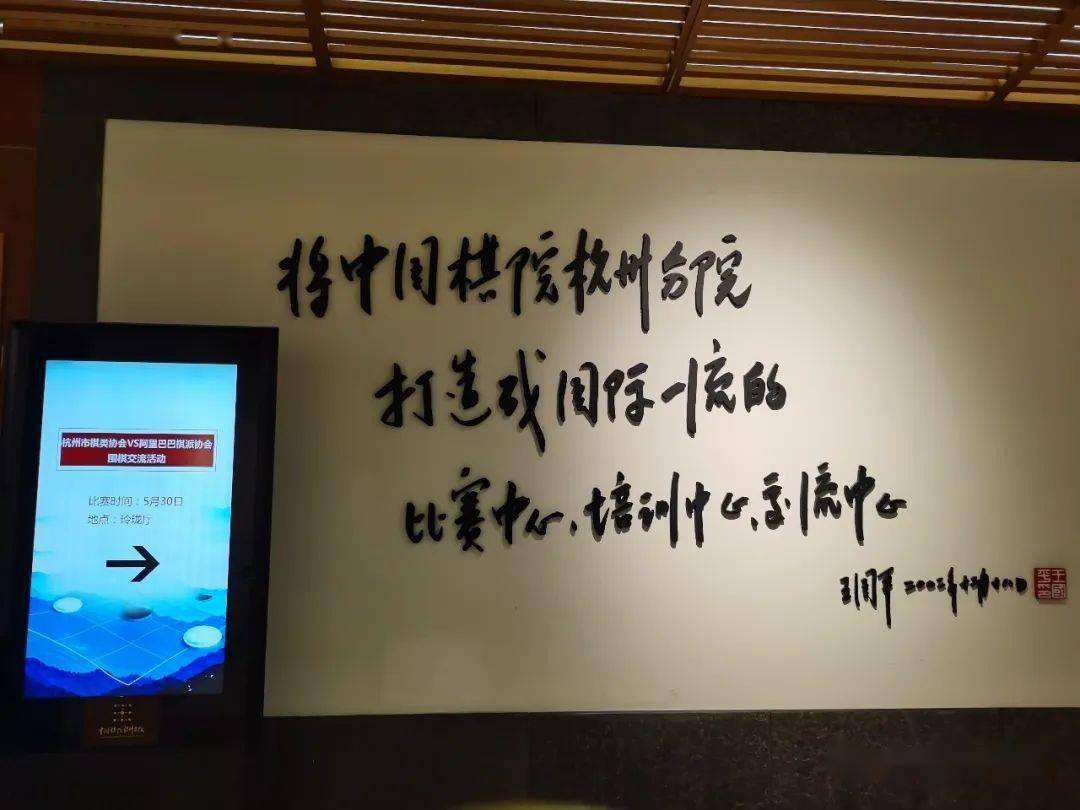 将中国棋院杭州分院
打造成国际一流的
比赛中心、培训中心、交流中心
王国平 二〇〇二年十二月十八日
王国平印
杭州市棋类协会VS阿里巴巴棋派协会
围棋交流活动
比赛时间：5月30日
地点：玲珑厅
中国棋院杭州分院